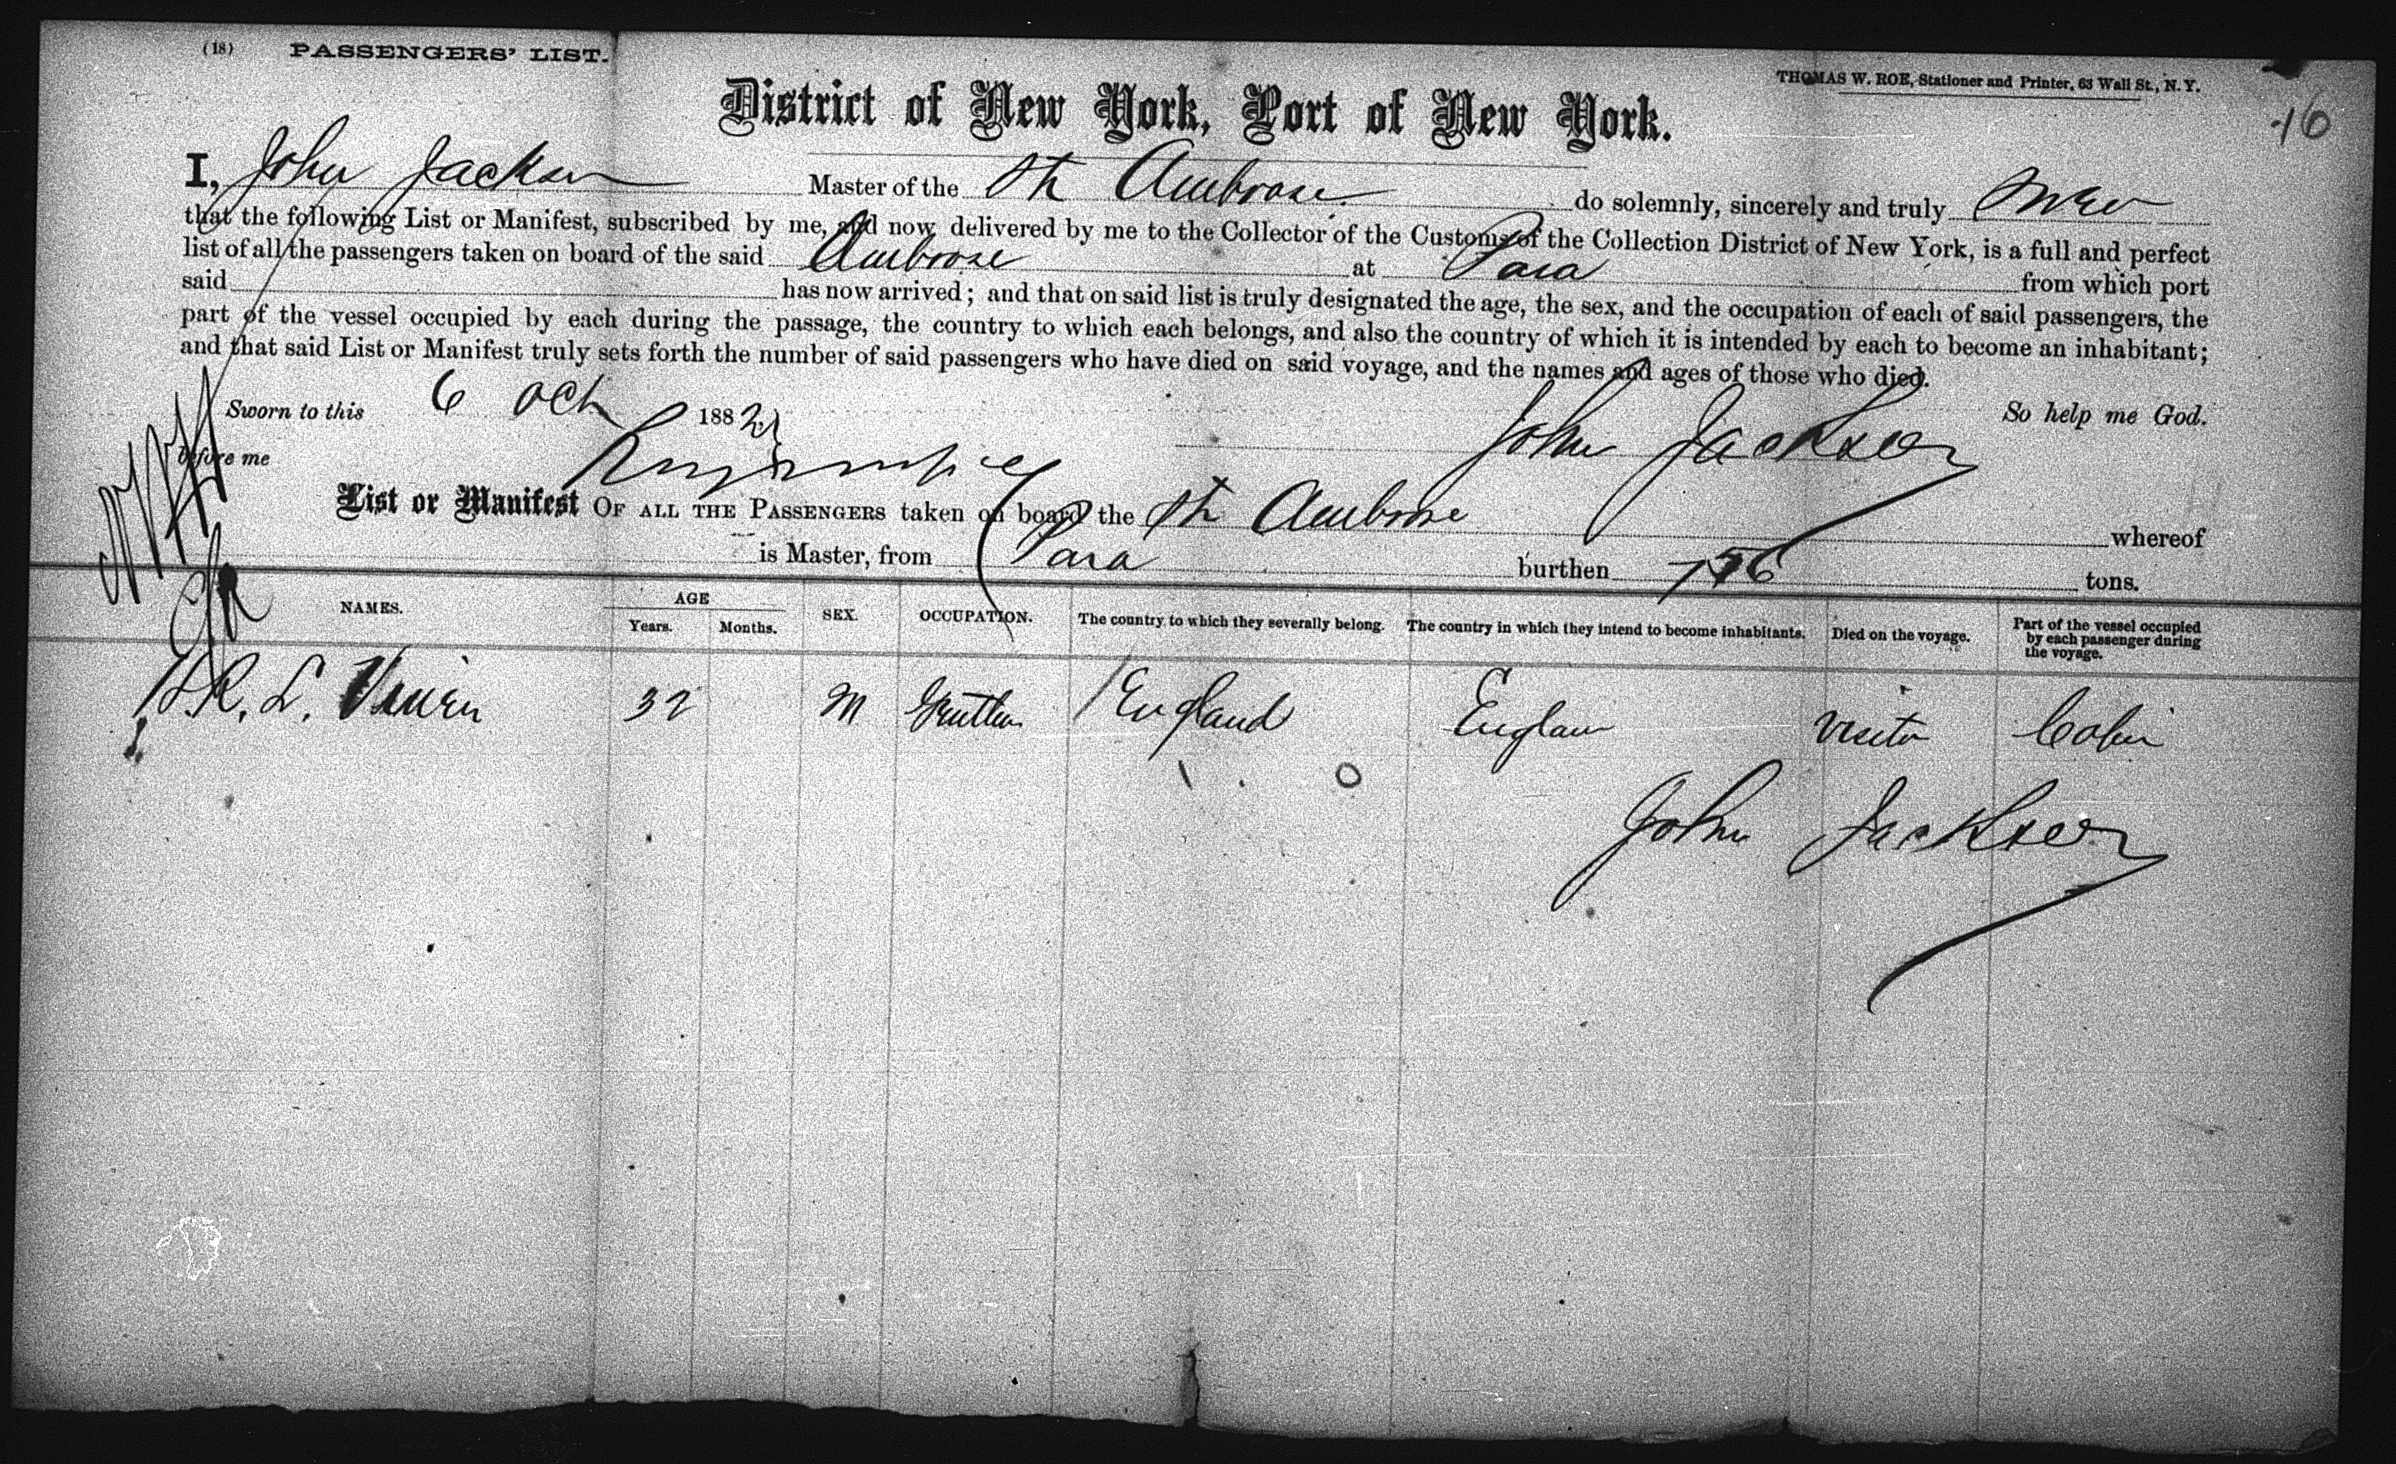 (18) PASSENGERS' LIST.
THOMAS W. ROE, Stationer and Printer, 63 Wall St., N. Y.
16
District of New York, Port of New York.
I, John Jackson Master of the Str Ambrose do solemnly, sincerely and truly swear
that the following List or Manifest, subscribed by me, and now delivered by me to the Collector of the Customs of the Collection District of New York, is a full and perfect
list of all the passengers taken on board of the said Ambrose at Para from which port
said has now arrived; and that on said list is truly designated the age, the sex, and the occupation of each of said passengers, the
part of the vessel occupied by each during the passage, the country to which each belongs, and also the country of which it is intended by each to become an inhabitant;
and that said List or Manifest truly sets forth the number of said passengers who have died on said voyage, and the names and ages of those who died.
Sworn to this 6 Oct 1882 So help me God.
John Jackson
before me
List or Manifest OF ALL THE PASSENGERS taken on board the Str Ambrose whereof
is Master, from Para burthen tons.
NAMES. AGE Years. Months. SEX. OCCUPATION. The country to which they severally belong. The country in which they intend to become inhabitants. Died on the voyage. Part of the vessel occupied by each passenger during the voyage.
R. L. 32 M England England visitor Cabin
John Jackson